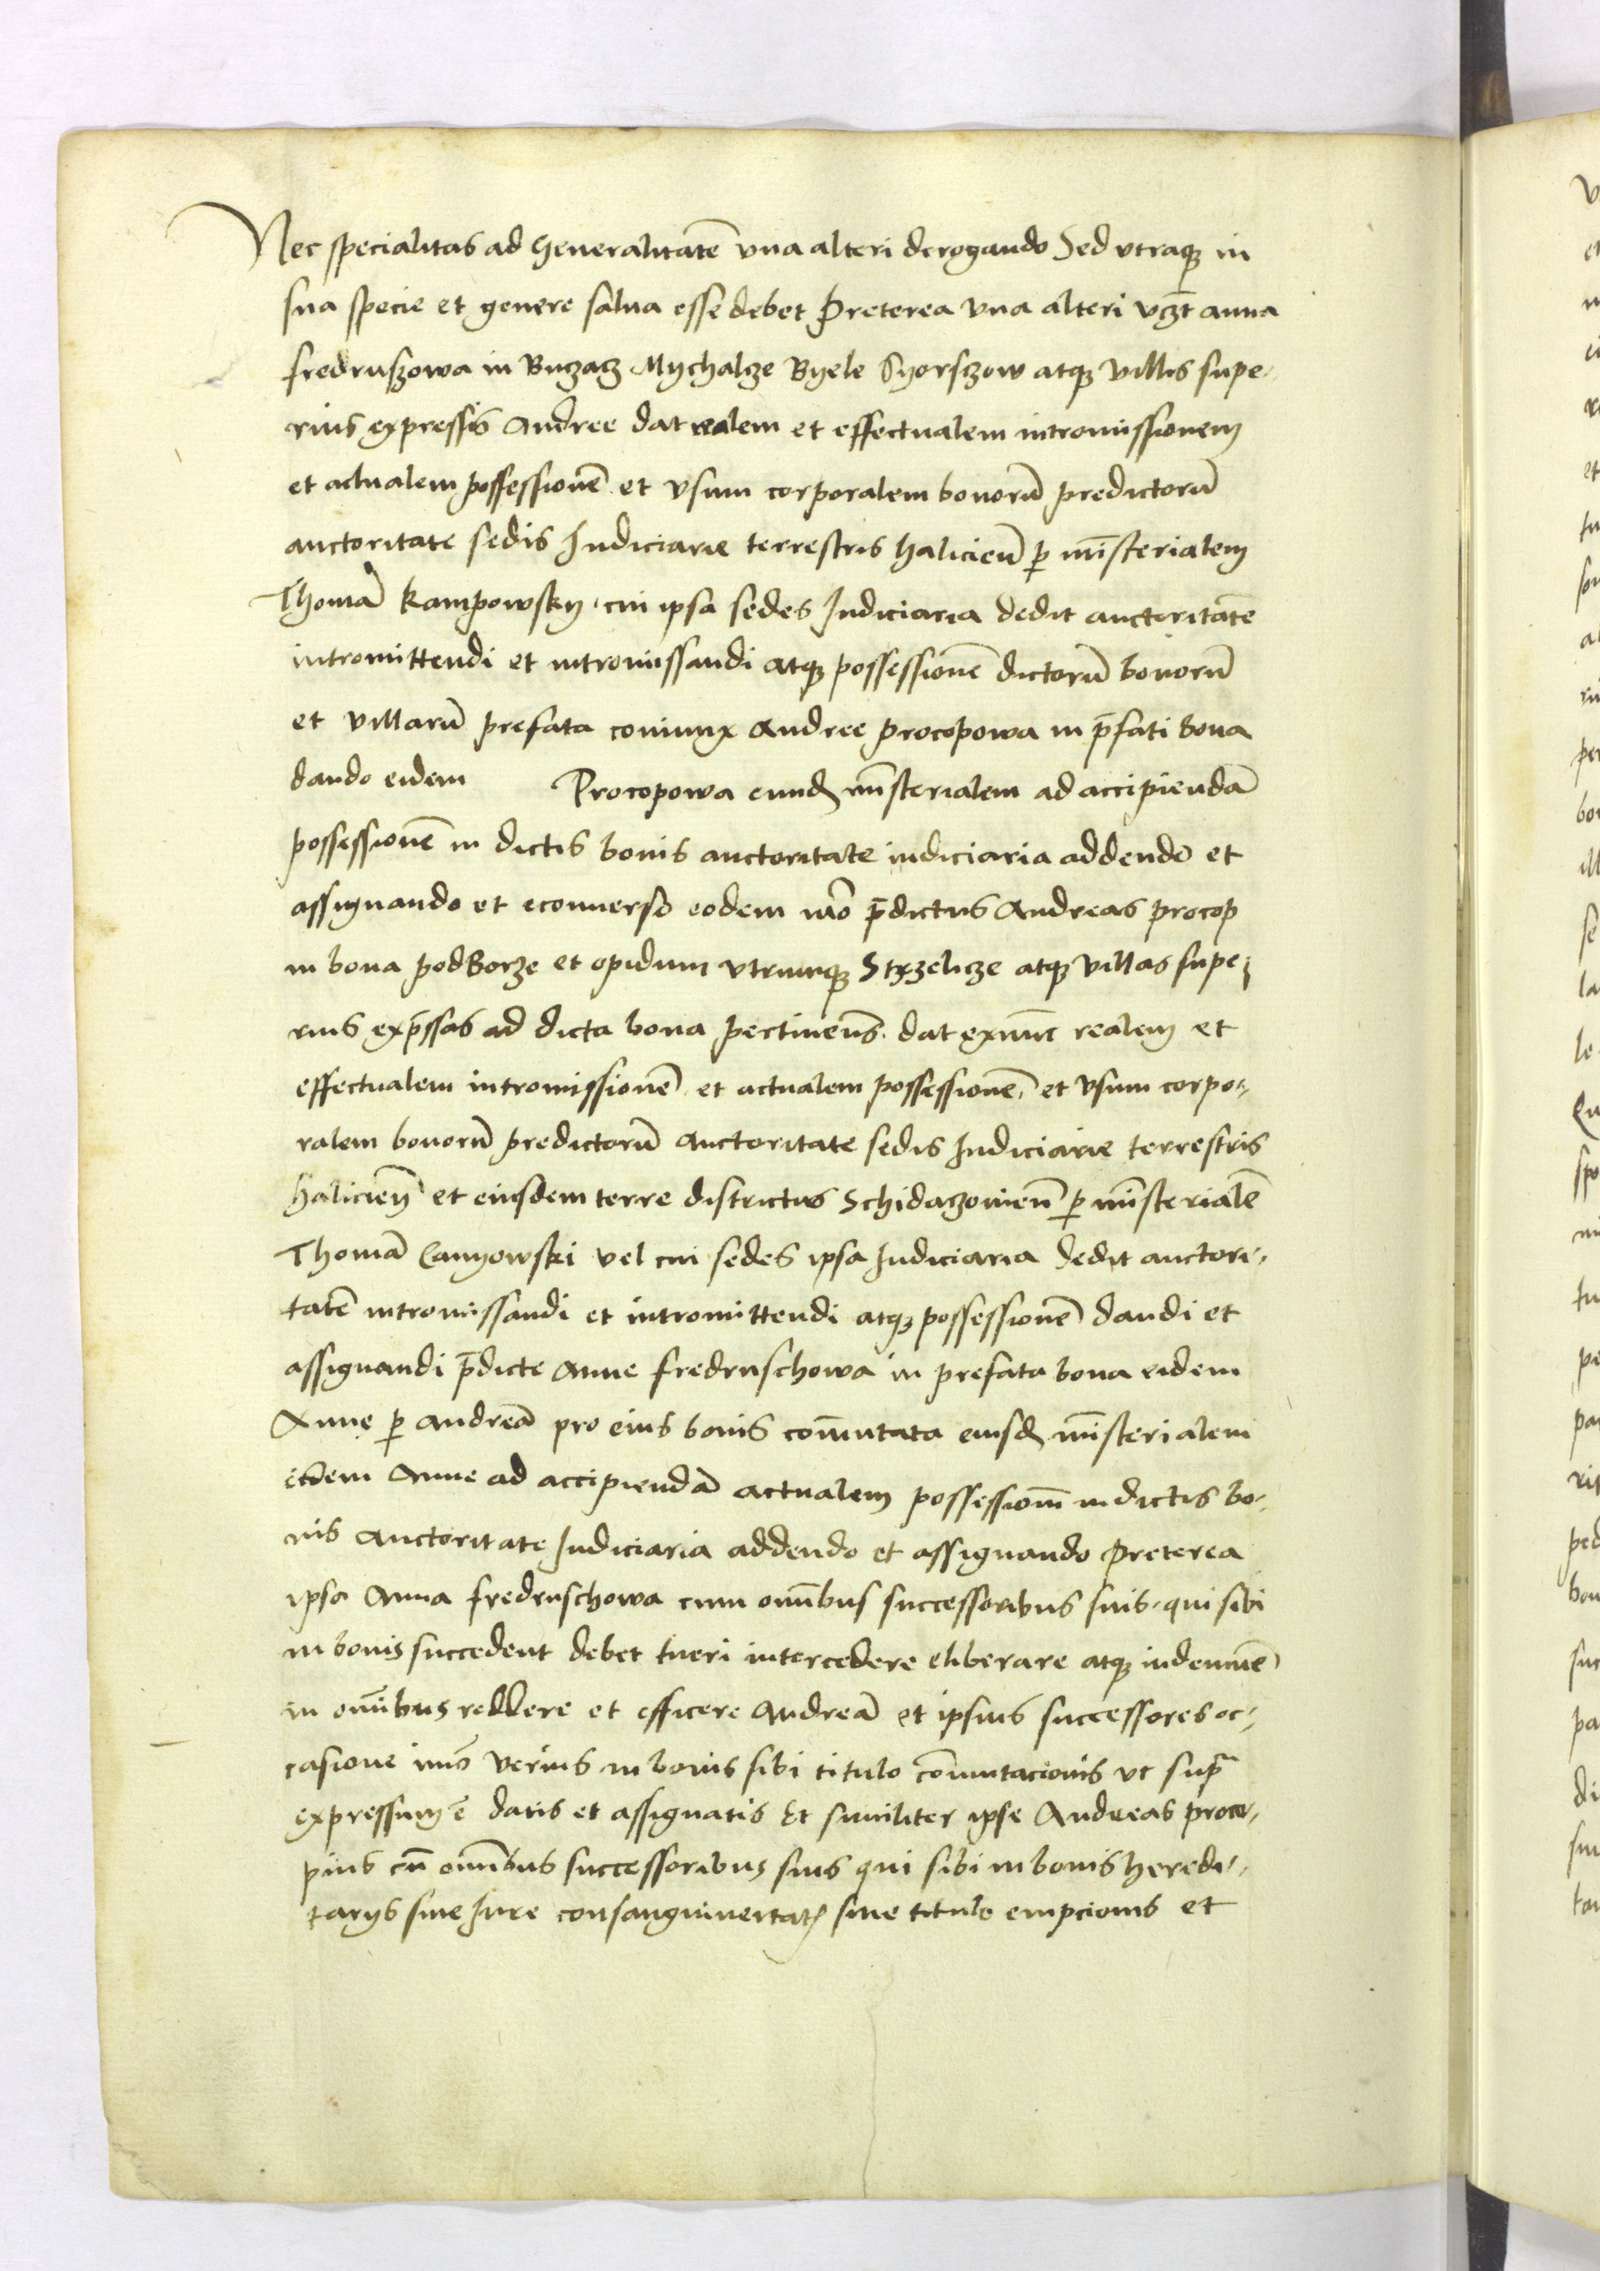 Nec specialitas ad Generalitatē vna alteri derogando Sed vtraqꝫ in
sua specie et genere salua esse debet Preterea vna alteri vczt anna
fredruszowa in Buczacz Mychalcze Byele Syorszow atqꝫ villis supe-
rius expressis Andree dat realem et effectualem intromissionem
et actualem possessionē et vsum corporalem bonorū predictorū
auctoritate sedis Judiciarie terrestris halicieñ ꝑ mīsterialem
Thomā Kampowsky cui ipsa sedes Judiciaria dedit auctoritatē
intromittendi et intromissandi atqꝫ possessionē dictorū bonorū
et villarū prefata coniunx Andree procopowa in p̄fati bona
dando eidem Procopowa eundꝫ mīsterialem ad accipiendā
possessionē in dictis bonis auctoritate iudiciaria addendo et
assignando et econuerso eodem mō p̄dictus Andreas procop
in bona podBorze et opidum vtrumqꝫ Strzelicze atqꝫ villas supe-
rius exp̄ssas ad dicta bona pertinens̄ dat exnunc realem et
effectualem intromissionē et actualem possessionē et vsum corpo-
ralem bonorū predictorū auctoritate sedis Judiciarie terrestris
halicieñ et eiusdem terre districtus Schidaczowieñ ꝑ mīsterialē
Thomā Canyowski vel cui sedes ipsa Judiciaria dedit auctori-
tatē intromissandi et intromittendi atqꝫ possessionē dandi et
assignandi p̄dicte Anne fredruschowa in prefata bona eidem
Anne ꝑ andreā pro eius bonis com̄utata eiusdꝫ mīsterialem
eidem Anne ad accipiendā actualem possessionē in dictis bo-
nis auctoritate Judiciaria addendo et assignando preterea
ipsa Anna fredruschowa cum om̄ibus successoribus suis qui sibi
in bonis succedent debet tueri intercedere eliberare atqꝫ indemnē
in om̄ibus reddere et efficere Andreā et ipsius successores oc-
casione imō verius in bonis sibi titulo com̄utacionis vt supra
expressum ē datis et assignatis Et similiter ipse Andreas proco-
pius cū om̄ibus successoribus suis qui sibi in bonis heredi-
tarys siue Jure consanguineitatꝭ siue titulo empcionis et